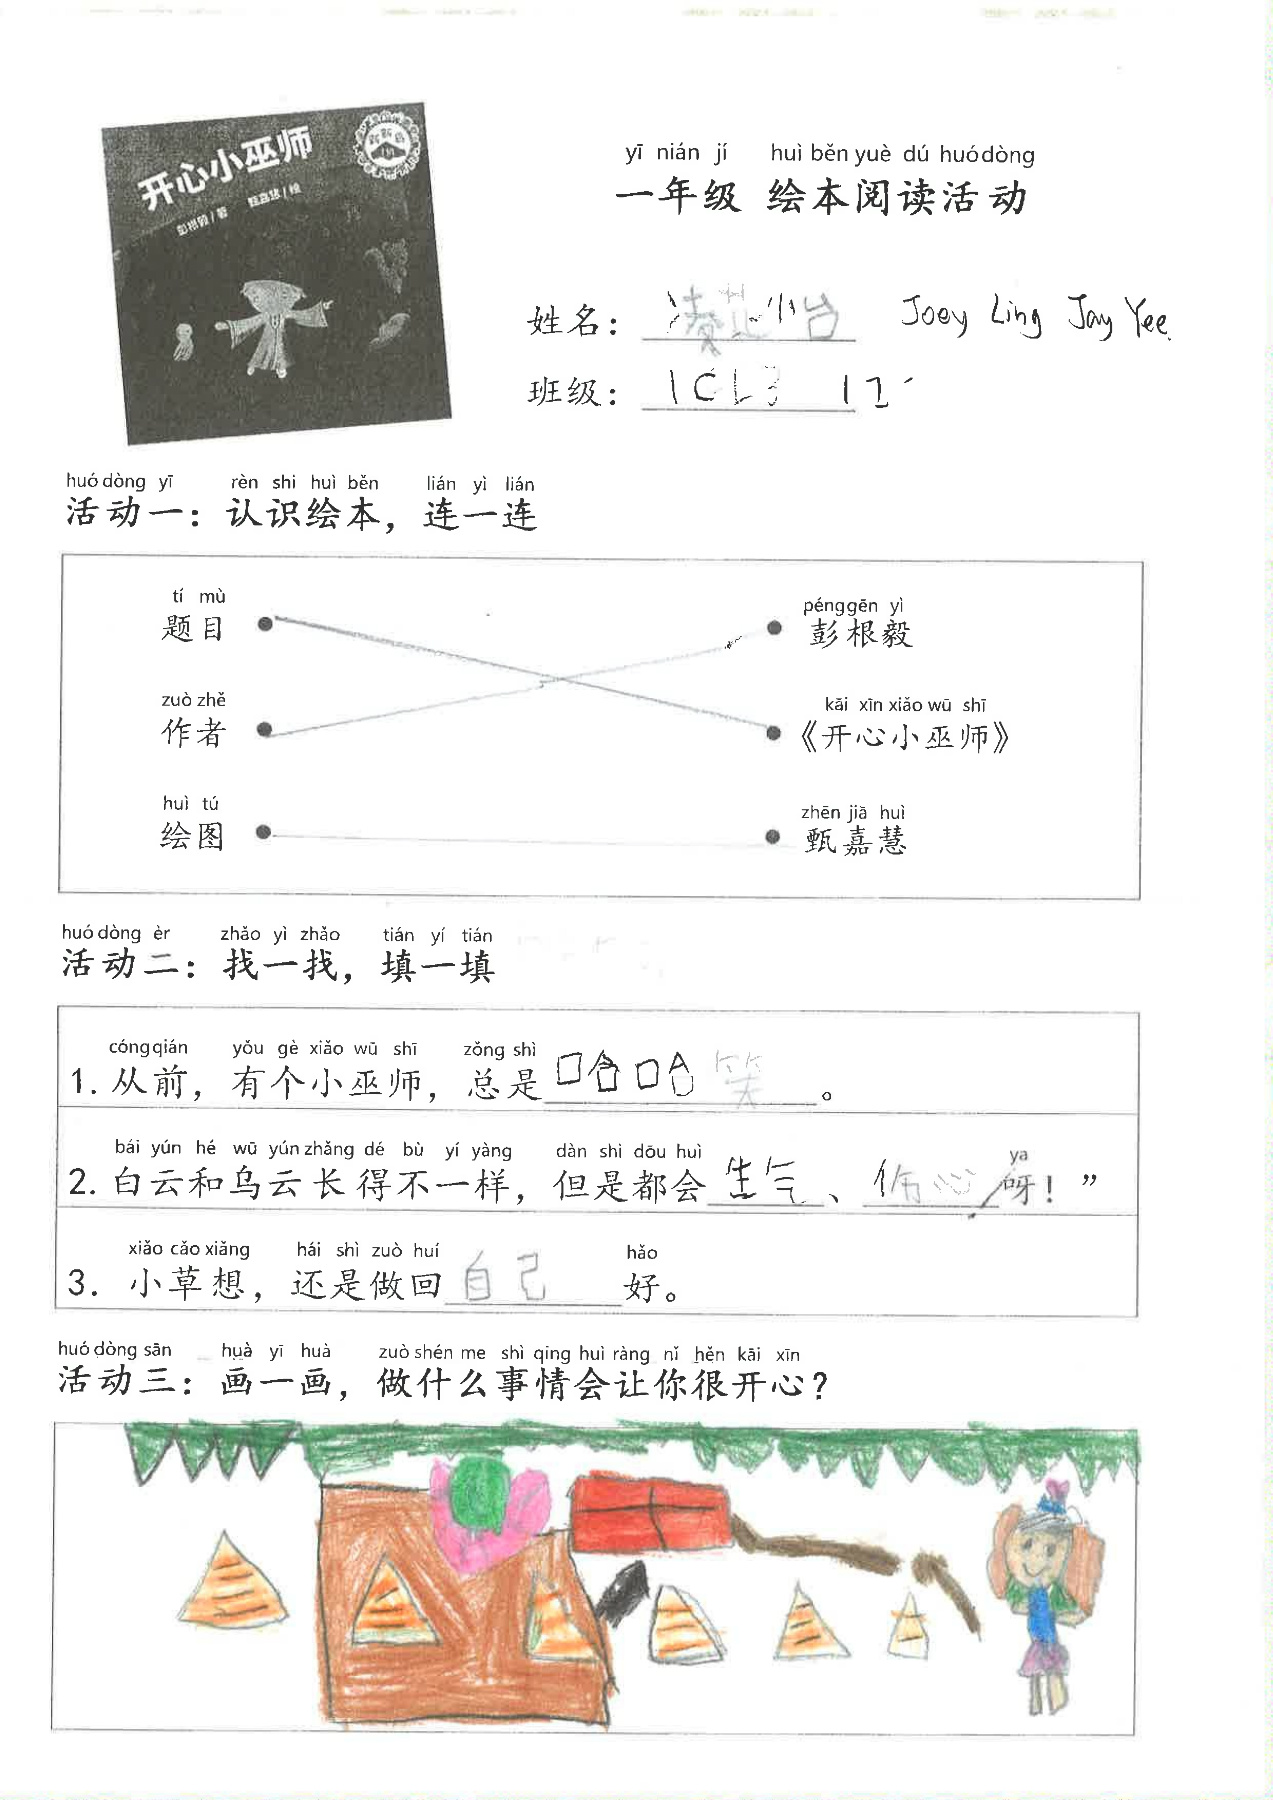 开心小巫师
彭根毅 | 著 甄嘉慧 | 绘
yī nián jí huì běn yuè dú huó dòng
一年级 绘本阅读活动
姓名： Joey Ling Jay Yee
班级： 1CL3
huó dòng yī rèn shi huì běn lián yì lián
活动一：认识绘本，连一连
tí mù
题目
péng gēn yì
彭根毅
zuò zhě
作者
kāi xīn xiǎo wū shī
《开心小巫师》
huì tú
绘图
zhēn jiā huì
甄嘉慧
huó dòng èr zhǎo yì zhǎo tián yí tián
活动二：找一找，填一填
cóng qián yǒu gè xiǎo wū shī zǒng shì
1. 从前，有个小巫师，总是哈哈笑。
bái yún hé wū yún zhǎng dé bù yí yàng dàn shì dōu huì ya
2. 白云和乌云长得不一样，但是都会生气、伤心呀！”
xiǎo cǎo xiǎng hái shì zuò huí hǎo
3. 小草想，还是做回自己好。
huó dòng sān huà yī huà zuò shén me shì qing huì ràng nǐ hěn kāi xīn
活动三：画一画，做什么事情会让你很开心？